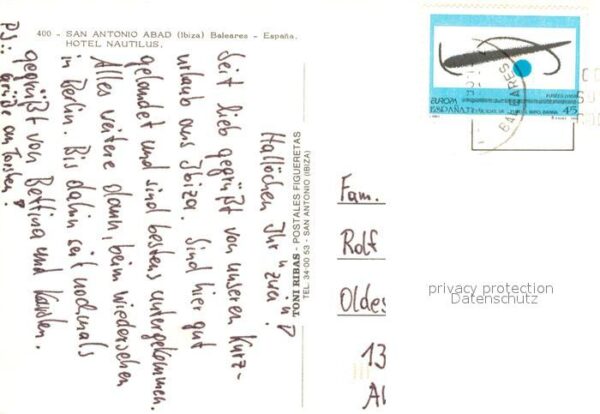 400 - SAN ANTONIO ABAD (Ibiza) Baleares - España.
HOTEL NAUTILUS.
Hallöchen Ihr "zwei"!
Seit lieb gegrüßt von unseren Kurz-
urlaub aus Ibiza. Sind hier gut
gelandet und sind bestens untergekommen.
Alles weitere dann, beim wiedersehen
in Berlin. Bis dahin seit nochmals
gegrüßt von Bettina und Karsten.
PS: Grüße an Torsten!
TONI RIBAS - POSTALES FIGUERETAS
TEL. 34-00 53 - SAN ANTONIO (IBIZA)
EUROPA
ESPAÑA
45
BALEARES
Fam.
Rolf
Oldes
13
privacy protection
Datenschutz